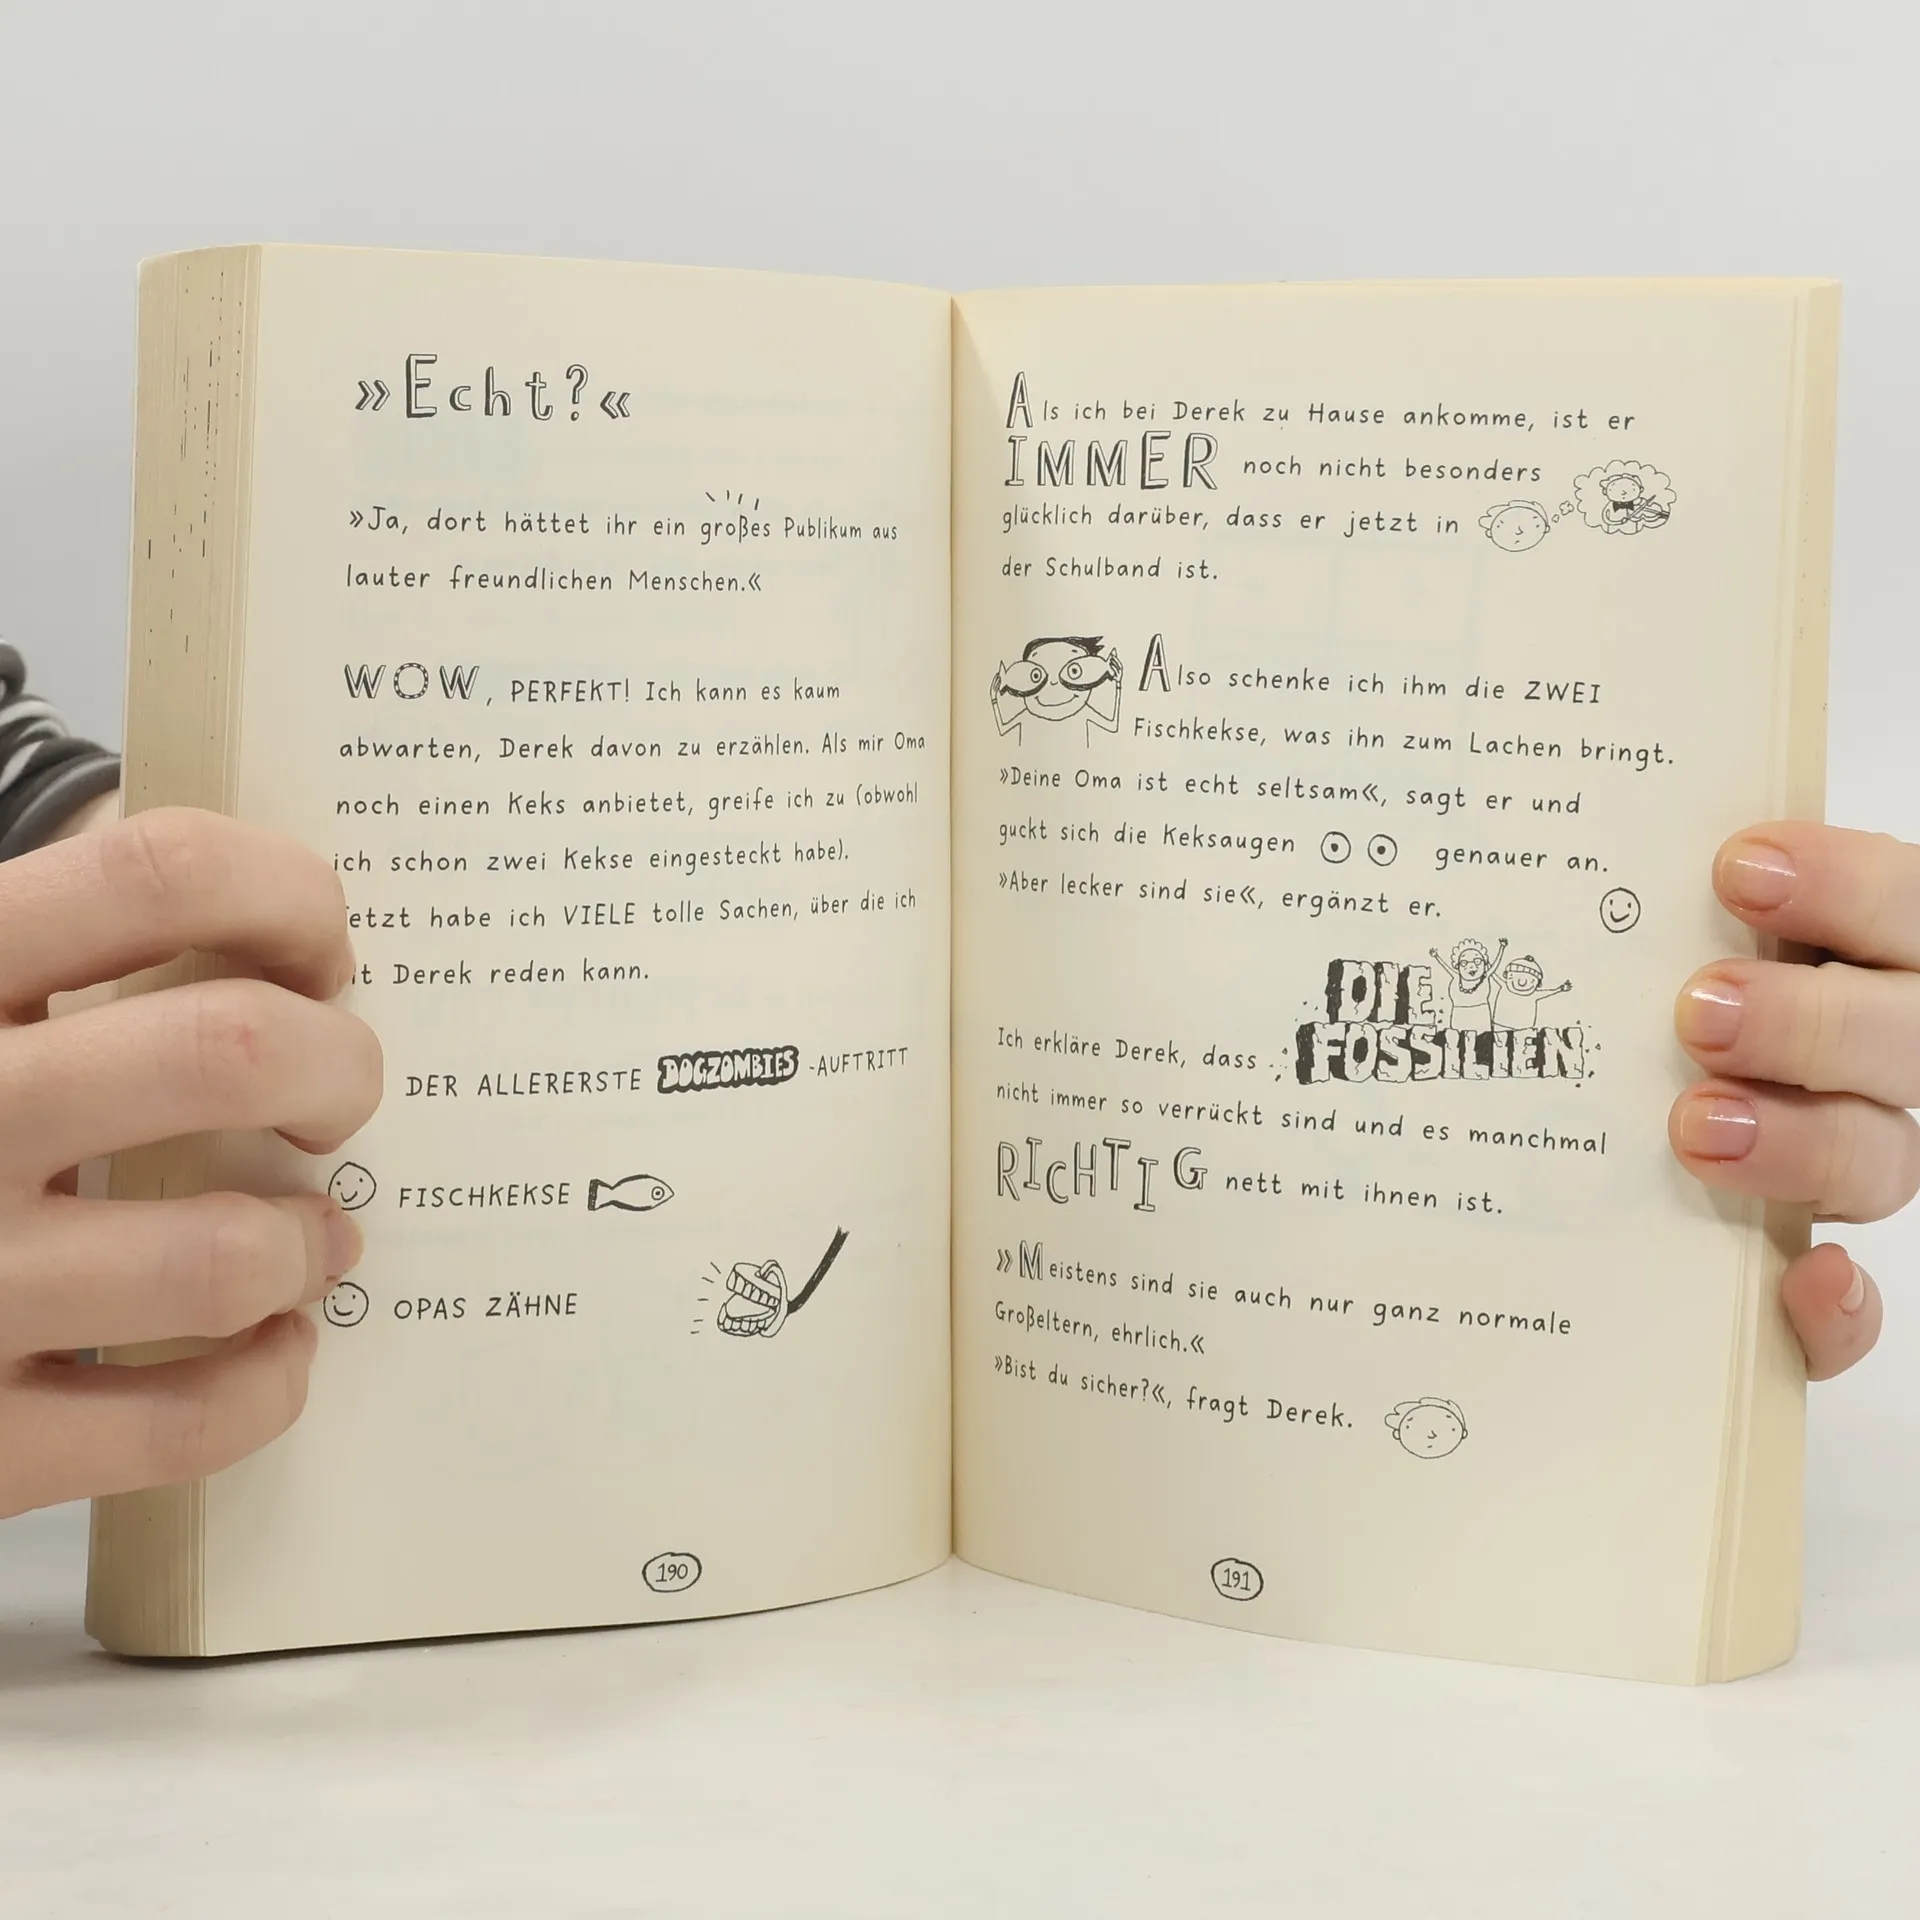 »Echt?«
»Ja, dort hättet ihr ein großes Publikum aus
lauter freundlichen Menschen.«
WOW, PERFEKT! Ich kann es kaum
abwarten, Derek davon zu erzählen. Als mir Oma
noch einen Keks anbietet, greife ich zu (obwohl
ich schon zwei Kekse eingesteckt habe).
etzt habe ich VIELE tolle Sachen, über die ich
it Derek reden kann.
DER ALLERERSTE DOGZOMBIES-AUFTRITT
FISCHKEKSE
OPAS ZÄHNE
190
Als ich bei Derek zu Hause ankomme, ist er
IMMER noch nicht besonders
glücklich darüber, dass er jetzt in
der Schulband ist.
Also schenke ich ihm die ZWEI
Fischkekse, was ihn zum Lachen bringt.
»Deine Oma ist echt seltsam«, sagt er und
guckt sich die Keksaugen genauer an.
»Aber lecker sind sie«, ergänzt er.
Ich erkläre Derek, dass DIE FOSSILIEN
nicht immer so verrückt sind und es manchmal
RICHTIG nett mit ihnen ist.
»Meistens sind sie auch nur ganz normale
Großeltern, ehrlich.«
»Bist du sicher?«, fragt Derek.
191